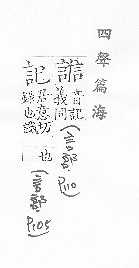 四聲篇海
音記
義同
(言部 P110)
記 居意切
録也識
也
(言部 P105)